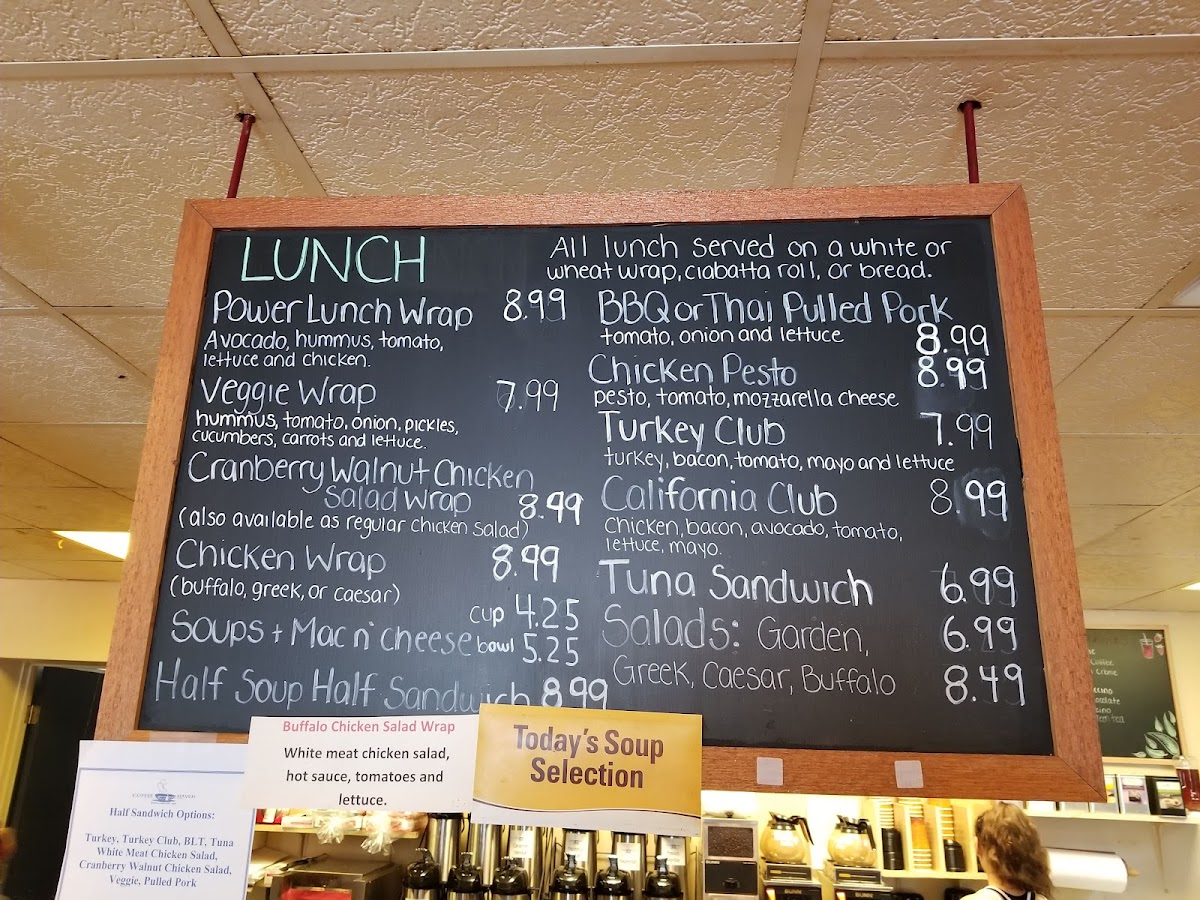 LUNCH
All lunch served on a white or
wheat wrap, ciabatta roll, or bread.
Power Lunch Wrap 8.99
Avocado, hummus, tomato,
lettuce and chicken.
Veggie Wrap 7.99
hummus, tomato, onion, pickles,
cucumbers, carrots and lettuce.
Cranberry Walnut Chicken
Salad Wrap 8.99
(also available as regular chicken salad)
Chicken Wrap 8.99
(buffalo, greek, or caesar)
cup 4.25
Soups + Mac n' cheese bowl 5.25
Half Soup Half Sandwich 8.99
BBQ or Thai Pulled Pork
tomato, onion and lettuce 8.99
Chicken Pesto 8.99
pesto, tomato, mozzarella cheese
Turkey Club 7.99
turkey, bacon, tomato, mayo and lettuce
California Club 8.99
chicken, bacon, avocado, tomato,
lettuce, mayo.
Tuna Sandwich 6.99
Salads: Garden, 6.99
Greek, Caesar, Buffalo 8.49
Buffalo Chicken Salad Wrap
White meat chicken salad,
hot sauce, tomatoes and
lettuce.
Today's Soup
Selection
Half Sandwich Options:
Turkey, Turkey Club, BLT, Tuna
White Meat Chicken Salad,
Cranberry Walnut Chicken Salad,
Veggie, Pulled Pork
BUNN